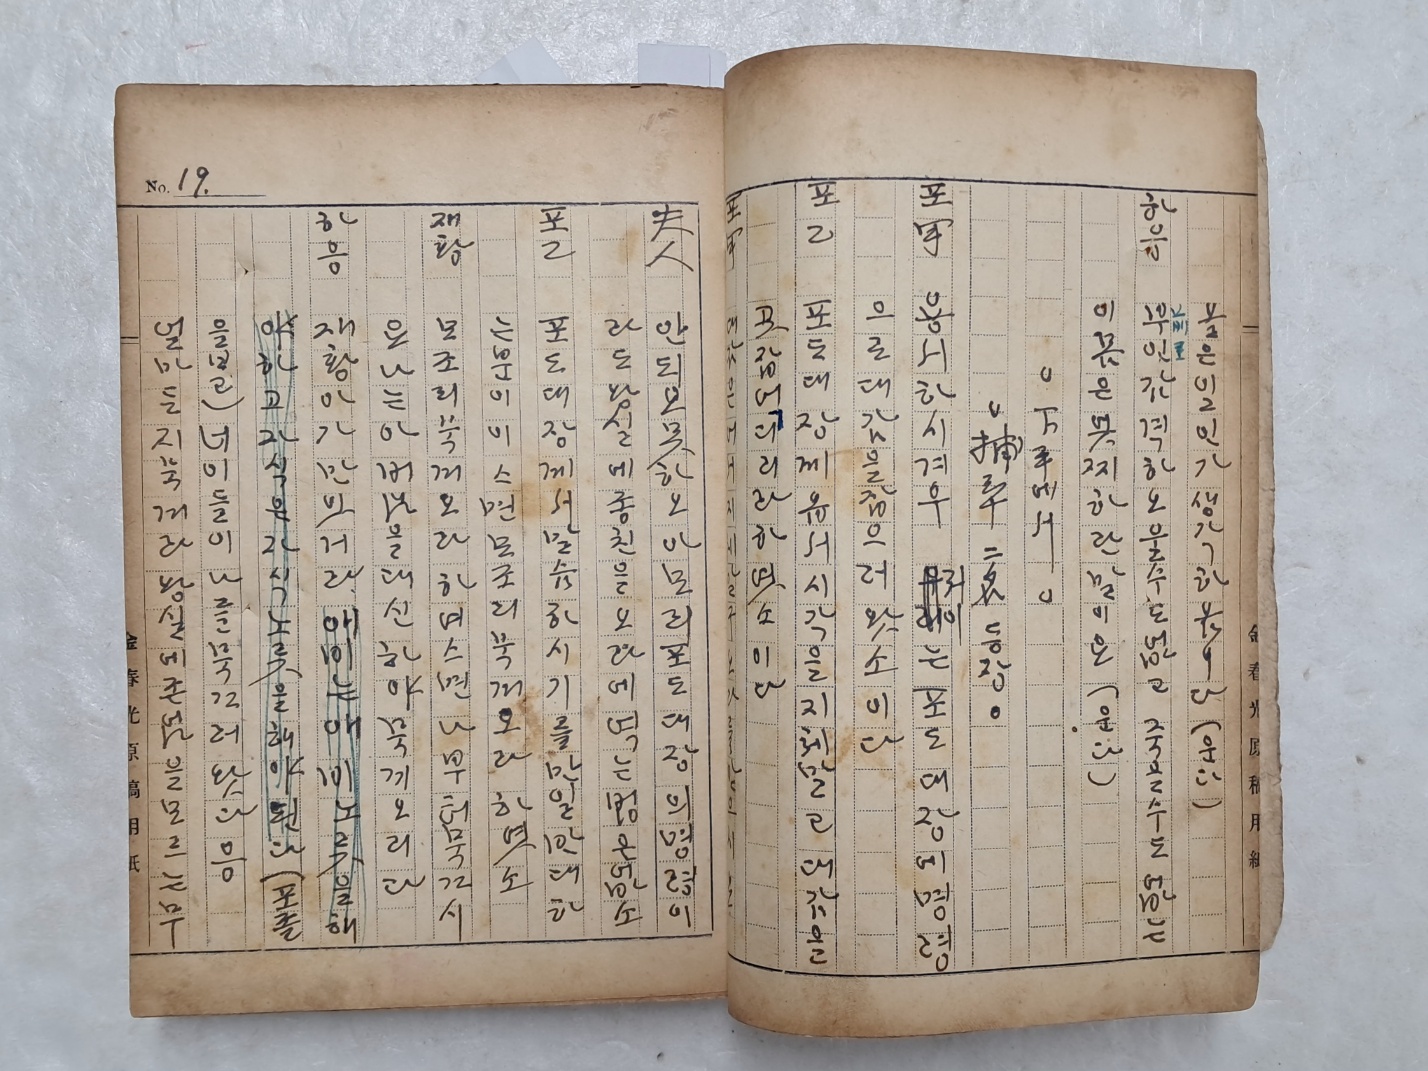 붉은 일인가 생각하옵니다 (운다)
한응 부인 감격하오 울수도 없고 죽을수도 없는
이 몸은 못찌하란 말이요 (운다)
ㅇ 下手에서 ㅇ
ㅇ 捕卒 二名 등장。
포군 용서하시게우 저이는 포도대장의 명령
으로 대감을 잡으러 왔소이다
포乙 포도대장께옵서 시각을 지체말고 대감을
곳 잡어 대리라 하엿소이다
포군
No. 19.
夫人 안되오 못하오 아모리 포도대장의 명령이
라도 왕실에 종친을 오라에 넉는 법은 없소
포乙 포도대장께서 말슴하시기를 만일 반대하
는 분이 이스면 모조리 묵거오라 하엿소
재황 모조리 묵거오라 하여스면 나부터 묵그시
요 나는 아버님을 대신하야 묵거오리다
한응 재황아 가만 잇거라. 애비는 애비 노릇을 해
야하고 자식은 자식 노릇을 해야 된다 (포졸
을 보고) 너이들이 나를 묵그러 왔다 음
얼마든지 묵거라 왕실의 존엄을 모르는 무
金春光原稿用紙
金春光原稿用紙